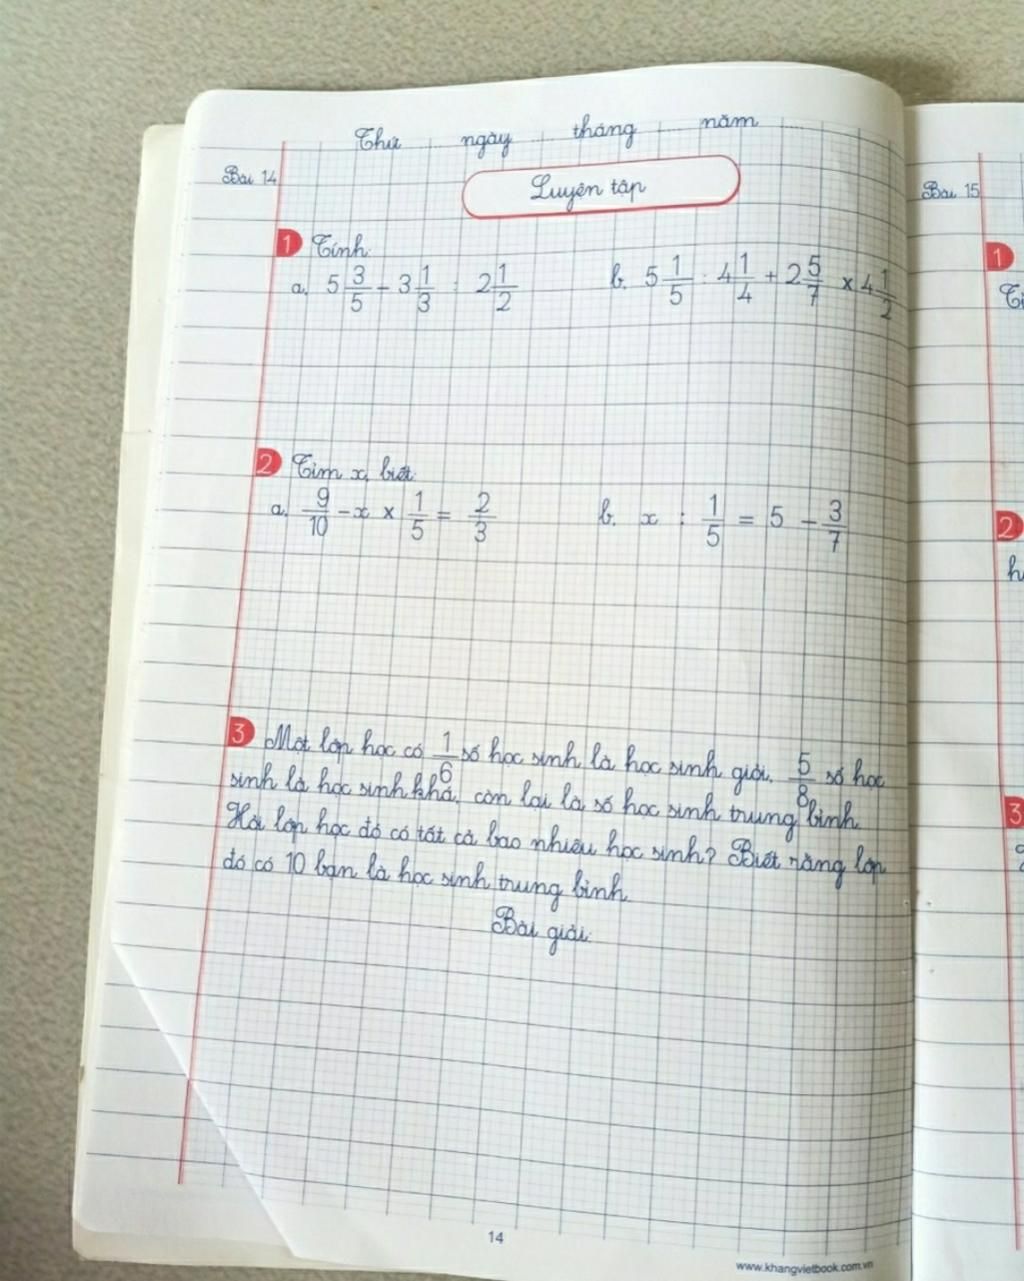 Thứ ngày tháng năm
Bài 14
Luyện tập
1 Tính:
a. 5 3/5 - 3 1/3 : 2 1/2 b. 5 1/5 : 4 1/4 + 2 5/7 × 4 1/2
2 Tìm x, biết:
a. 9/10 - x × 1/5 = 2/3 b. x : 1/5 = 5 - 3/7
3 Một lớp học có 1/6 số học sinh là học sinh giỏi, 5/8 số học
sinh là học sinh khá, còn lại là số học sinh trung bình.
Hỏi lớp học đó có tất cả bao nhiêu học sinh? Biết rằng lớp
đó có 10 bạn là học sinh trung bình.
Bài giải:
14
www.khangvietbook.com.vn
Bài 15
1
2
3